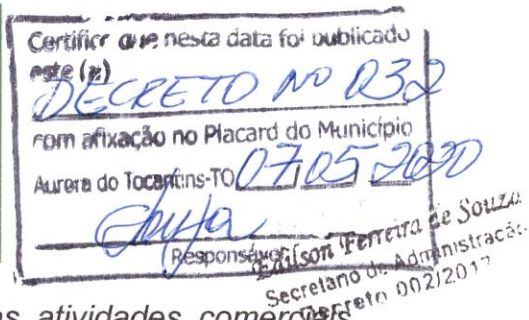 Certifico que nesta data foi publicado
este (a)
DECRETO Nº 032
com afixação no Placard do Município
Aurora do Tocantins-TO 07/05/2020
Responsável
Edilson Ferreira de Souza
Secretario de Administração
Decreto 002/2017
as atividades comerciais